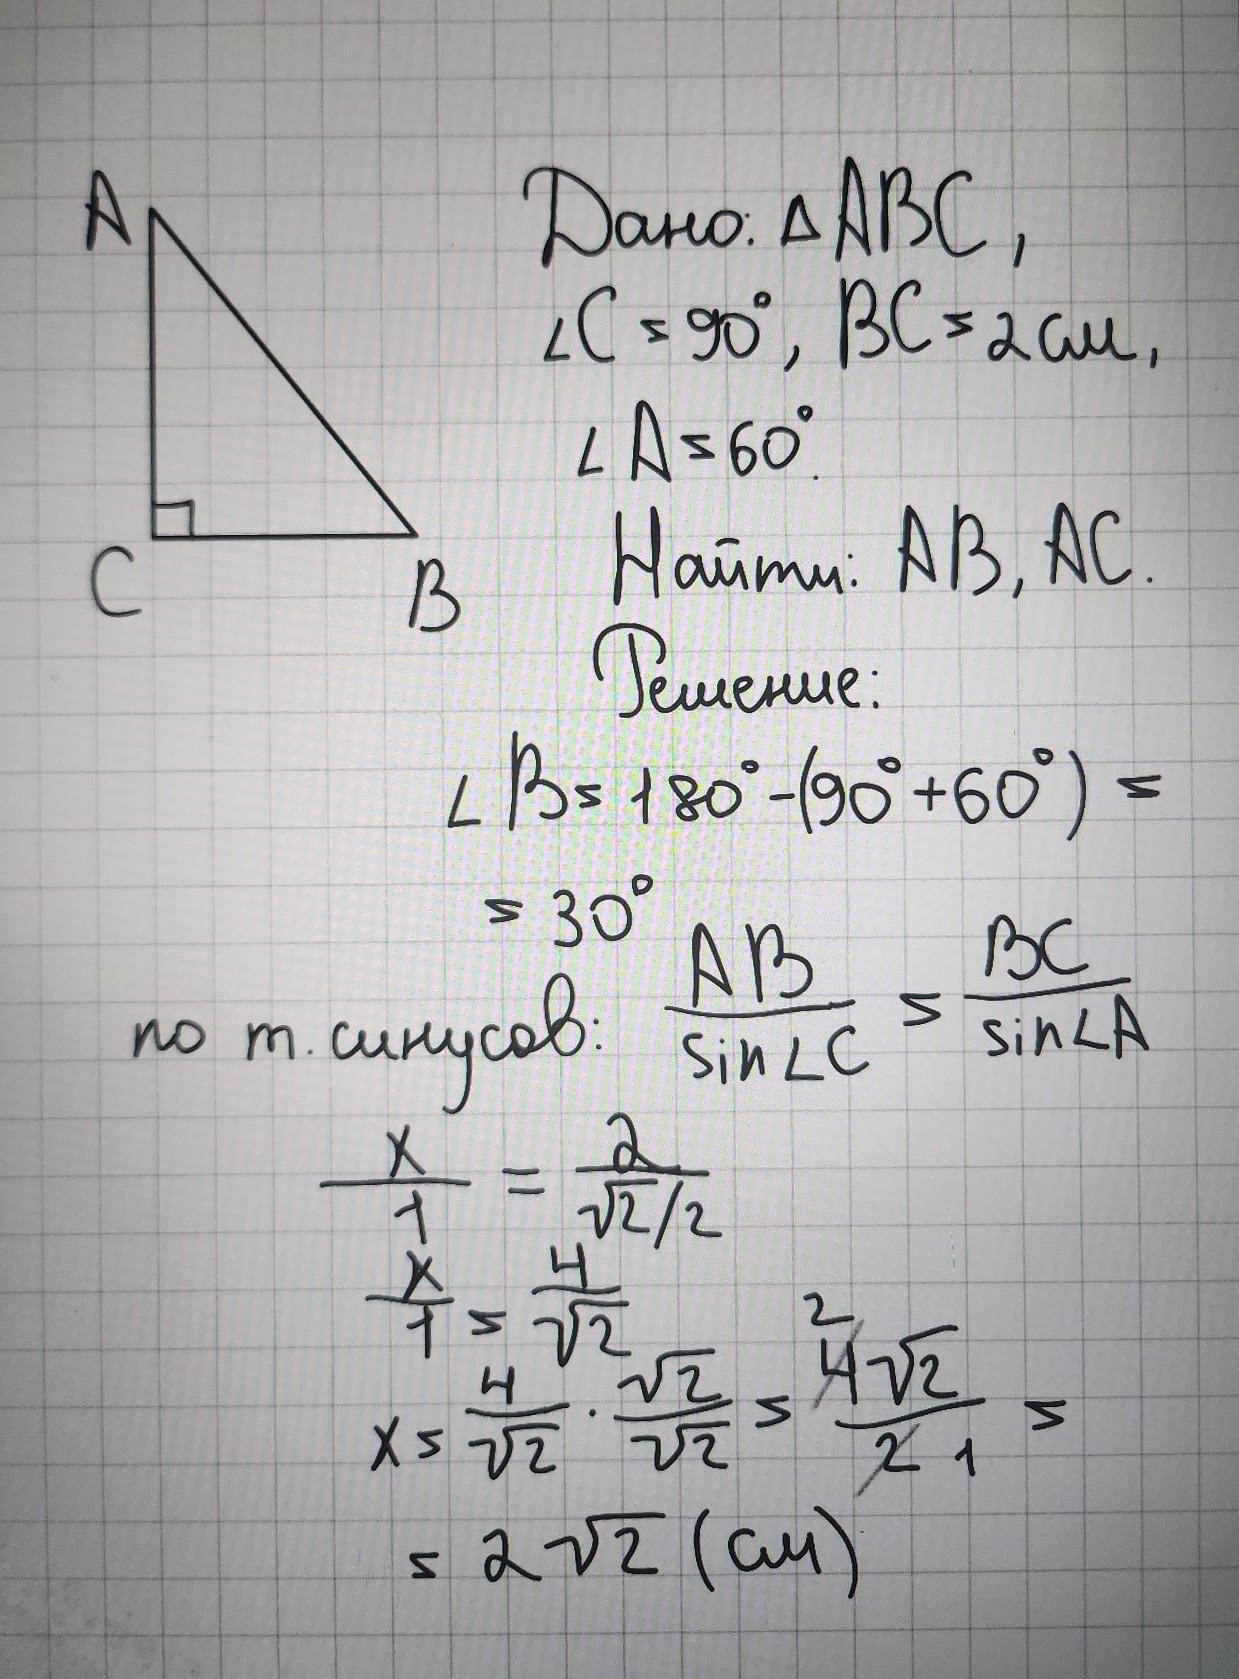 A
C
B
Дано: △ABC,
∠C = 90°, BC = 2 см,
∠A = 60°.
Найти: AB, AC.
Решение:
∠B = 180° - (90° + 60°) =
= 30°
по т. синусов: AB/sin∠C = BC/sin∠A
x/1 = 2/(√2/2)
x/1 = 4/√2
x = 4/√2 · √2/√2 = 4√2/2 = 2 1
= 2√2 (см)